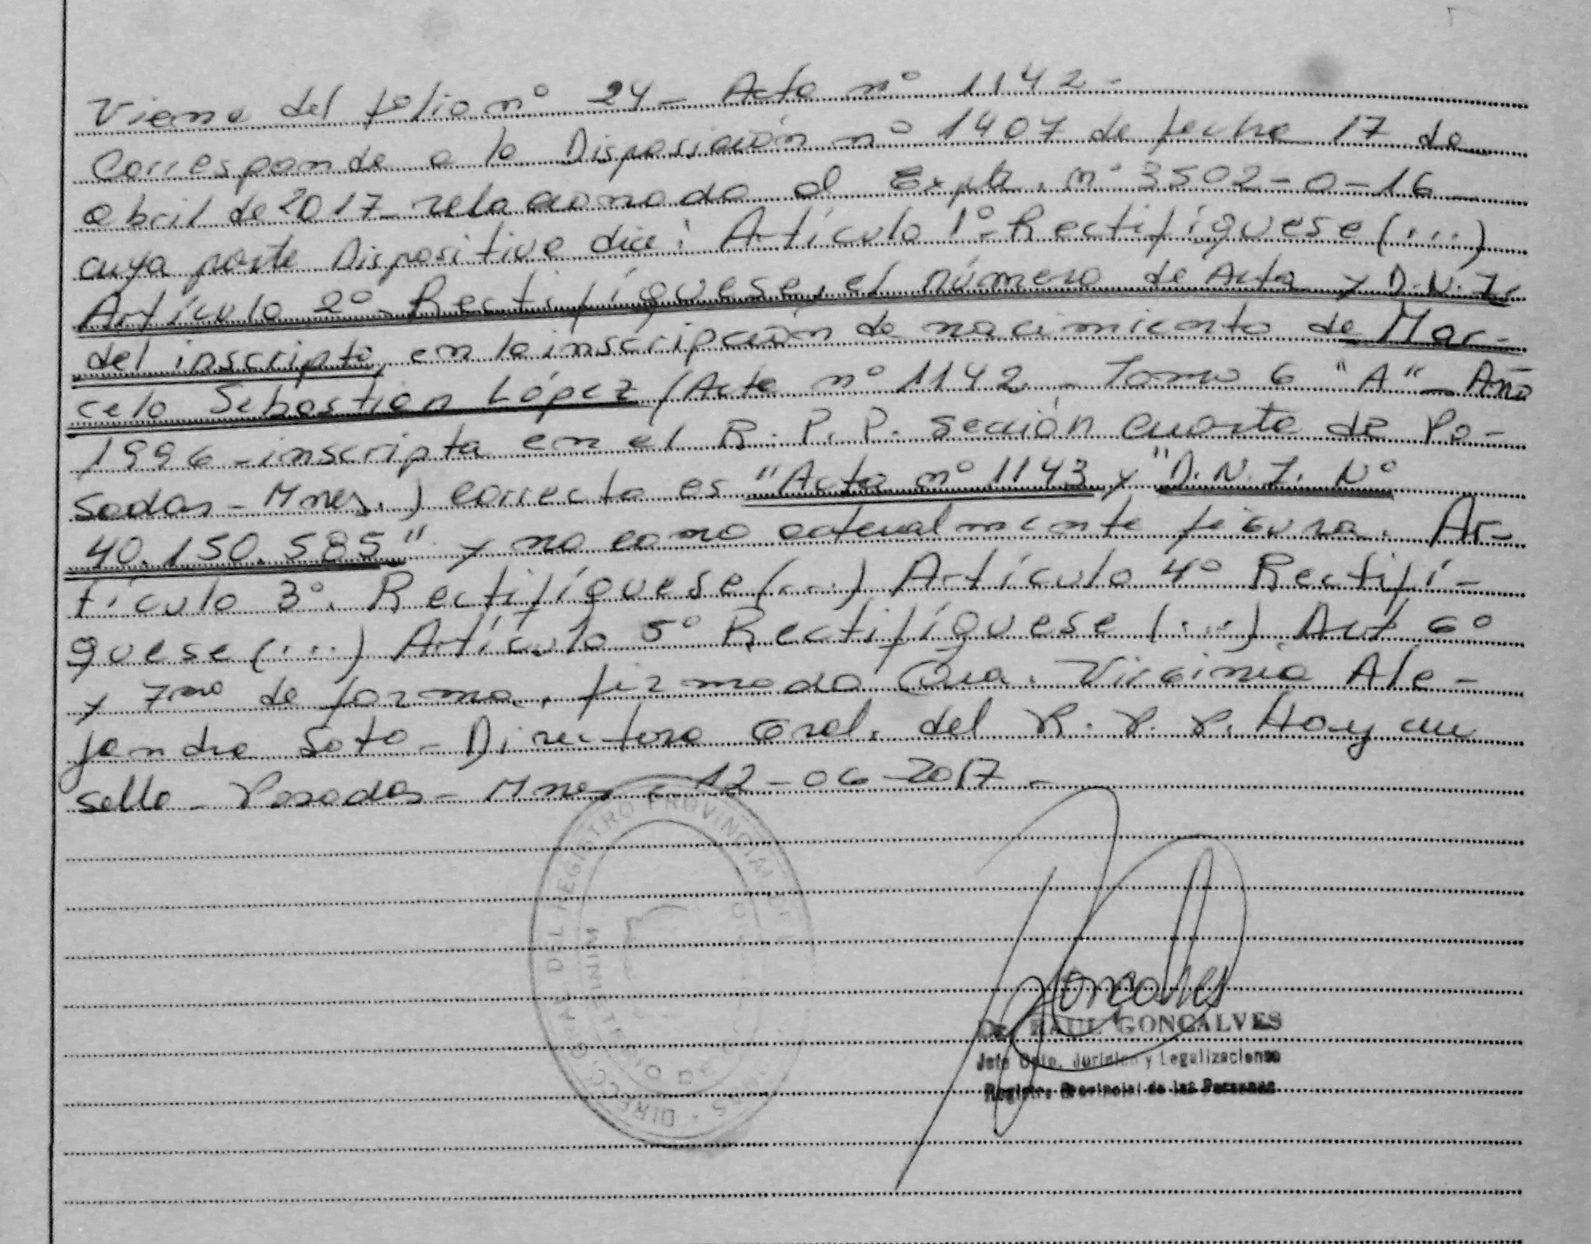 Viene del folio nº 24 - Acta nº 1142 -
Corresponde a la Disposición nº 1407 de fecha 17 de
abril de 2017 - relacionado al Expte. nº 3502-0-16 -
cuya parte Dispositiva dice: Artículo 1º - Rectifíquese (...)
Artículo 2º - Rectifíquese, el número de Acta y D.N.I.
del inscripto, en la inscripción de nacimiento de Mar-
celo Sebastian López (Acta nº 1142 - Tomo 6 "A" - Año
1996 - inscripta en el R. P. P. sección cuarta de Po-
sadas - Mnes.) correcto es "Acta nº 1143 y "D.N.I. Nº
40.150.585" y no como actualmente figura. Ar-
tículo 3º. Rectifíquese (...) Artículo 4º Rectifí-
quese (...) Artículo 5º Rectifíquese (...) Art 6º
y 7mo de forma. firmado Virginia Ale-
jandra Soto - Directora Gral. del R. P. P. Hay un
sello - Posadas - Mnes - 12-06-2017 -
DIRECC GRAL DEL REGISTRO PROVINCIAL
Goncalves
Dr. RAUL GONCALVES
Jefe Dpto. Jurídico y Legalizaciones
Registro Provincial de las Personas